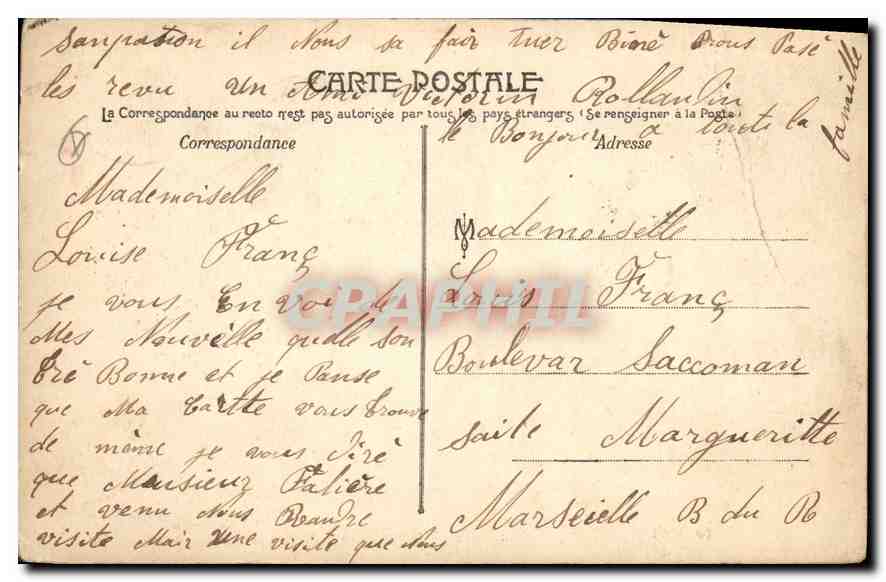 sanpation il Nous sa fair tuer Bièné Prous Pasé
les revu un Ami Victorin Rollandin
le Bonjour a toute la
famille
CARTE POSTALE
La Correspondance au recto n'est pas autorisée par tous les pays étrangers (Se renseigner à la Poste)
Correspondance
Mademoiselle
Louise Franç
je vous En voi de
Mes Nouvèlle quelle son
trè Bonne et je Panse
que Ma Cartte vous trouve
de mème je vous Diré
que Monsieur Faliere
et venu Nous Randre
visite Mair une visite que Nous
Adresse
Mademoiselle
Lovis Franç
Boulevar Saccoman
saite Margueritte
Marseielle B du R
GRAPHIL